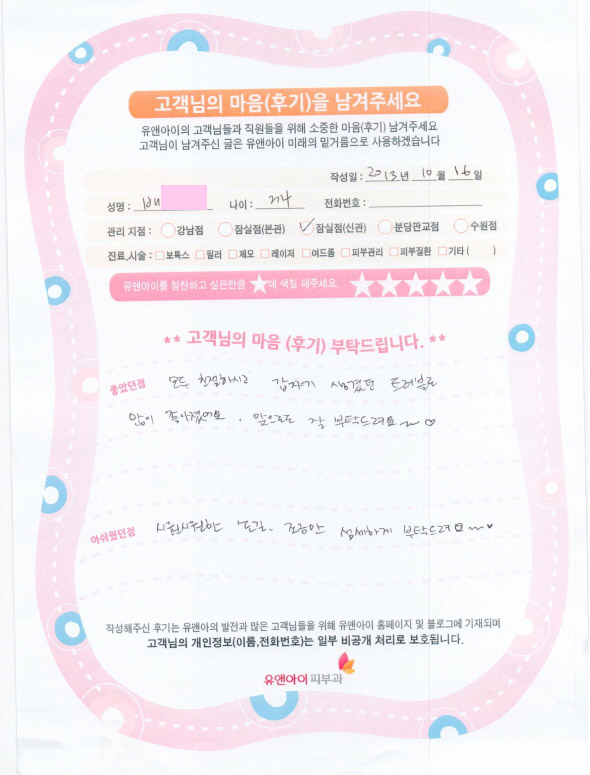 고객님의 마음(후기)을 남겨주세요
유앤아이의 고객님들과 직원들을 위해 소중한 마음(후기) 남겨주세요
고객님이 남겨주신 글은 유앤아이 미래의 밑거름으로 사용하겠습니다
작성일 : 2013년 10월 16일
성명 : 나이 : 전화번호 :
관리 지점 : 강남점 잠실점(본관) 잠실점(신관) 분당판교점 수원점
진료,시술 : 보톡스 필러 제모 레이저 여드름 피부관리 피부질환 기타 ( )
유앤아이를 칭찬하고 싶은만큼 ★에 색칠 해주세요. ★★★★★
** 고객님의 마음 (후기) 부탁드립니다. **
좋았던점 모두 친절하시고 갑자기 생겼던 트러블도
많이 좋아졌어요. 앞으로도 잘 부탁드려요~♡
아쉬웠던점 시원시원한 손길. 조금만 섬세하게 부탁드려요~♥
작성해주신 후기는 유앤아의 발전과 많은 고객님들을 위해 유앤아이 홈페이지 및 블로그에 기재되며
고객님의 개인정보(이름,전화번호)는 일부 비공개 처리로 보호됩니다.
유앤아이 피부과